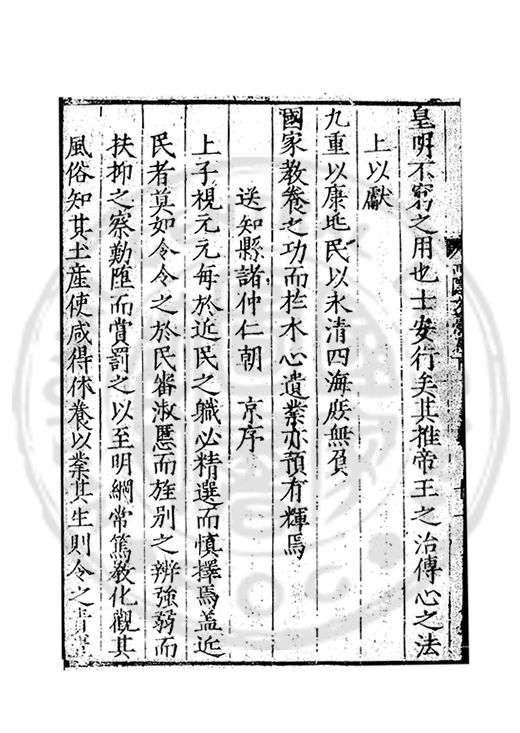 皇明不窮之用也士安行矣其推帝王之治傳心之法
上以獻
九重以康兆民以永清四海庶無負
國家教養之功而於水心遺業亦預有輝焉
送知縣諸仲仁朝京序
上子視元元每於近民之職必精選而慎擇焉蓋近
民者莫如令令之於民審淑慝而旌别之辨強弱而
扶抑之察勤惰而賞罰之以至明綱常篤教化觀其
風俗知其土産使咸得休養以業其生則令之責